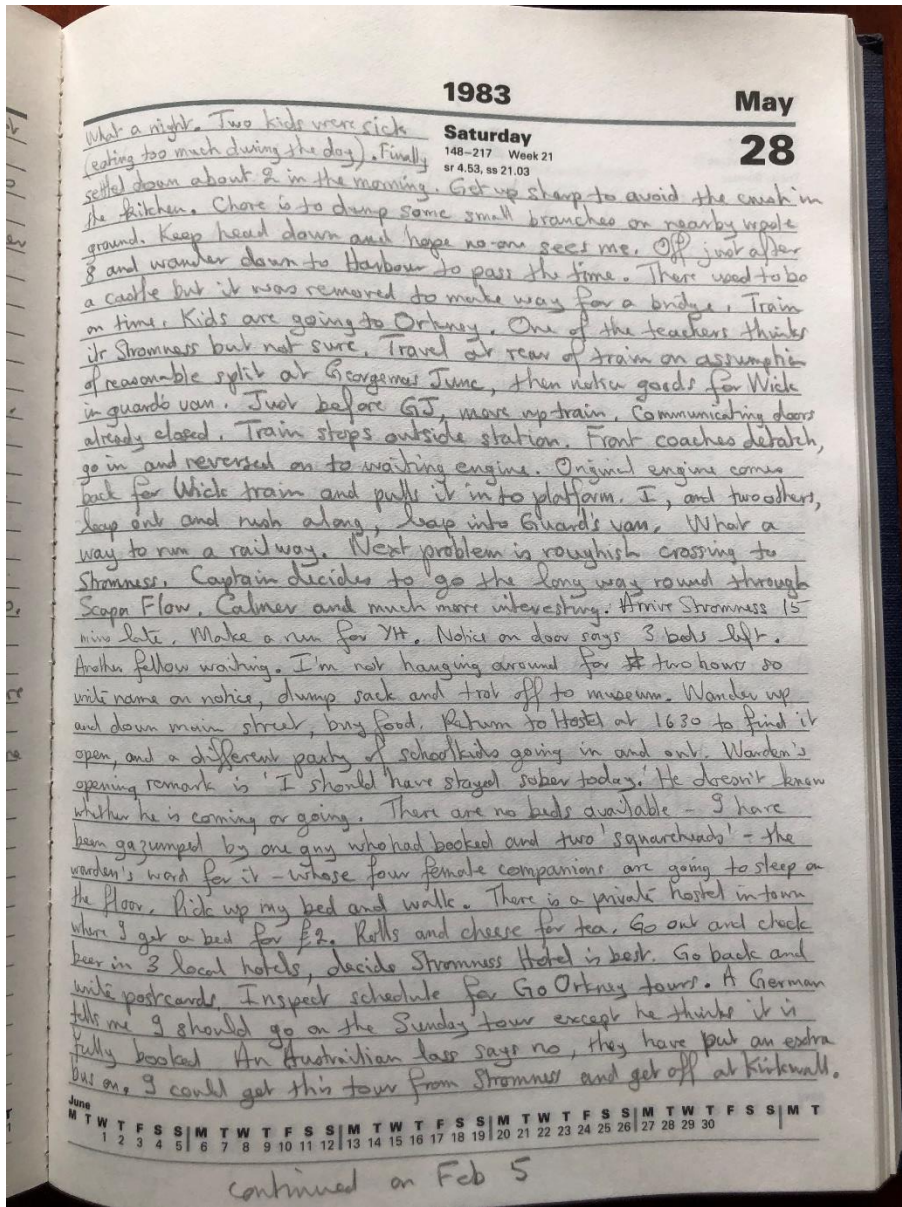 1983
May
Saturday
28
148–217 Week 21
sr 4.53, ss 21.03
What a night. Two kids were sick
(eating too much during the day). Finally
settled down about 2 in the morning. Get up sharp to avoid the crush in
the kitchen. Chore is to dump some small branches on nearby waste
ground. Keep head down and hope no-one sees me. Off just after
8 and wander down to Harbour to pass the time. There used to be
a castle but it was removed to make way for a bridge. Train
on time. Kids are going to Orkney. One of the teachers thinks
its Stromness but not sure. Travel at rear of train on assumption
of reasonable split at Georgemas Junc, then notice goods for Wick
in guard's van. Just before GJ, move up train. Communicating doors
already closed. Train stops outside station. Front coaches detatch,
go in and reversed on to waiting engine. Original engine comes
back for Wick train and pulls it in to platform. I, and two others,
leap out and rush along, leap into Guard's van. What a
way to run a railway. Next problem is roughish crossing to
Stromness. Captain decides to go the long way round through
Scapa Flow. Calmer and much more interesting. Arrive Stromness 15
mins late. Make a run for YH. Notice on door says 3 beds left.
Another fellow waiting. I'm not hanging around for two hours so
write name on notice, dump sack and trot off to museum. Wander up
and down main street, buy food. Return to Hostel at 1630 to find it
open, and a different party of schoolkids going in and out. Warden's
opening remark is 'I should have stayed sober today.' He doesn't know
whether he is coming or going. There are no beds available – I have
been gazumped by one guy who had booked and two 'squareheads' – the
warden's word for it – whose four female companions are going to sleep on
the floor. Pick up my bed and walk. There is a private hostel in town
where I get a bed for £2. Rolls and cheese for tea. Go out and check
beer in 3 local hotels, decide Stromness Hotel is best. Go back and
write postcards. Inspect schedule for Go Orkney tours. A German
tells me I should go on the Sunday tour except he thinks it is
fully booked. An Austrailian lass says no, they have put an extra
bus on. I could get this tour from Stromness and get off at Kirkwall.
June
M T W T F S S M T W T F S S M T W T F S S M T W T F S S M T W T F S S M T
1 2 3 4 5 6 7 8 9 10 11 12 13 14 15 16 17 18 19 20 21 22 23 24 25 26 27 28 29 30
continued on Feb 5